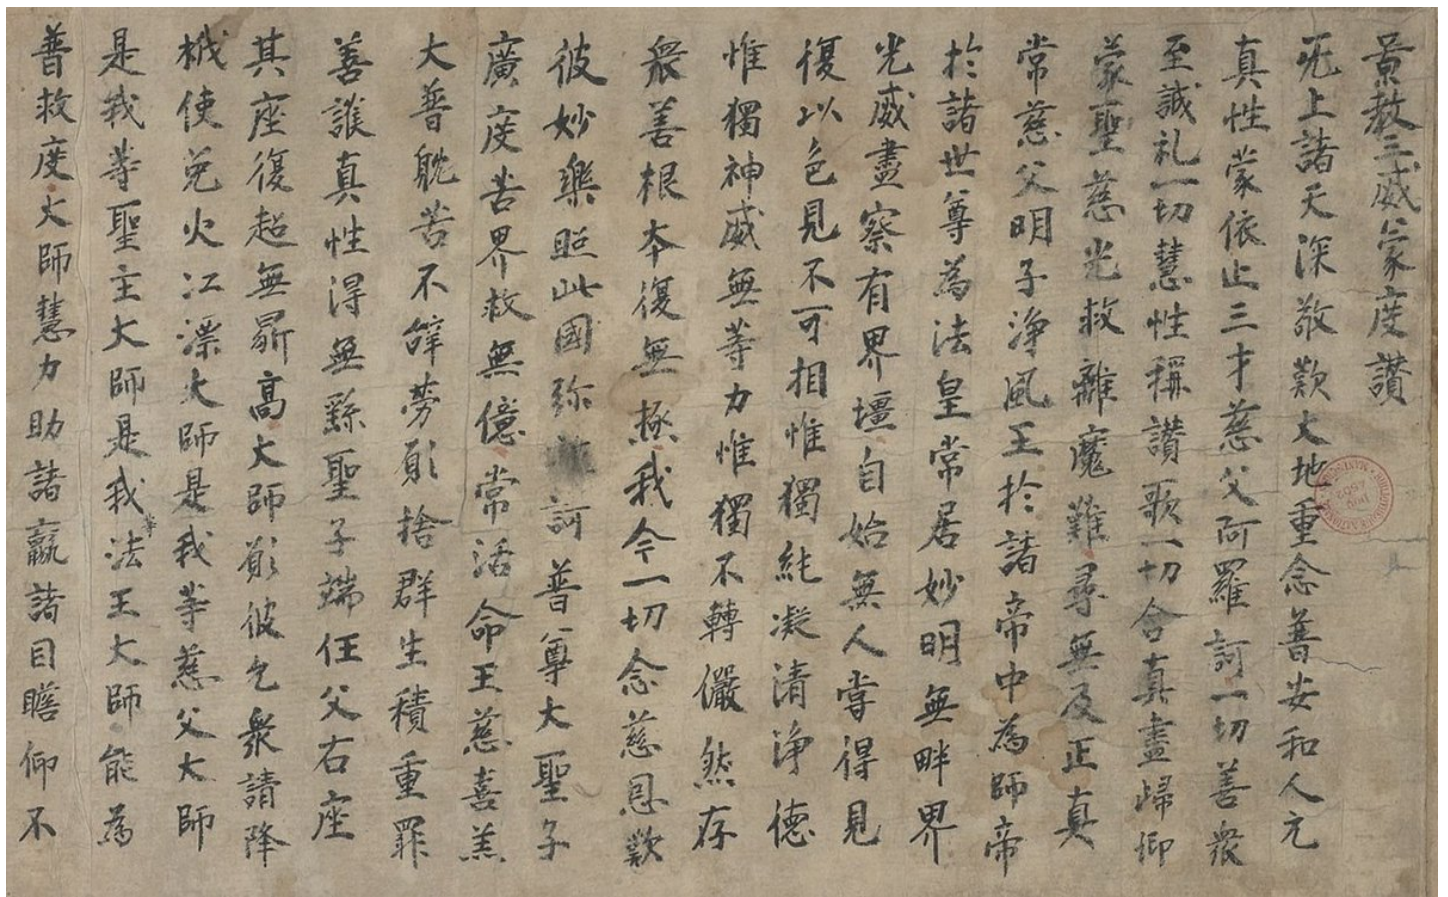 景教三威蒙度讚
无上諸天深敬歎大地重念普安和人元
真性蒙依止三才慈父阿羅訶一切善衆
至誠礼一切慧性稱讚歌一切含真盡歸仰
蒙聖慈光救離魔難尋無及正真
常慈父明子淨風王於諸帝中為師帝
於諸世尊為法皇常居妙明無畔界
光威盡察有界壃自始無人嘗得見
復以色見不可相惟獨純凝清淨德
惟獨神威無等力惟獨不轉儼然存
衆善根本復無極我今一切念慈恩歎
彼妙樂照此國弥訶普尊大聖子
廣度苦界救無億常活命王慈喜羔
大普躭苦不辝勞願捨群生積重罪
善護真性得無繇聖子端任父右座
其座復超無鼎高大師願彼乞衆請降
栰使免火江漂大師是我等慈父大師
是我等聖主大師是我法王大師能為
等
普救度大師慧力助諸羸諸目瞻仰不